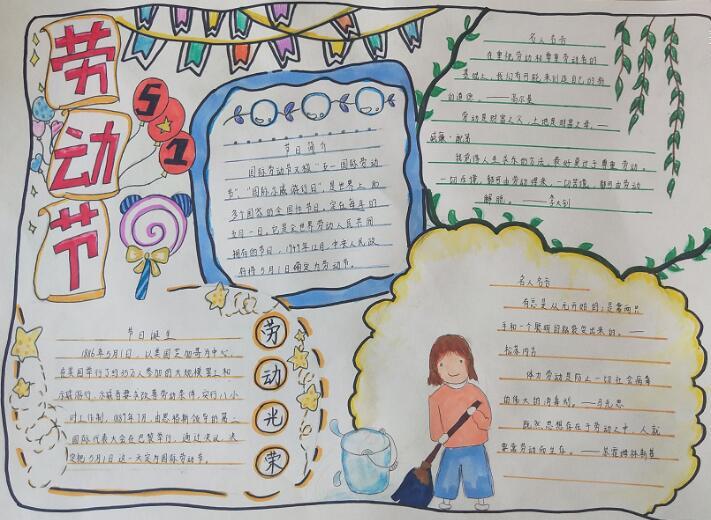 劳
动
节
5
1
节日简介
国际劳动节又称“五一国际劳动
节”、“国际示威游行日”,是世界上80
多个国家的全国性节日。定在每年的
五月一日。它是全世界劳动人民共同
拥有的节日,1949年12月,中央人民政
府将5月1日确定为劳动节。
名人名言
在重视劳动和尊重劳动者的
基础上,我们有可能来创造自己的新
的道德。——高尔基
劳动是财富之父,土地是财富之母。—
威廉·配第
我觉得人生求乐的方法,最好莫过于尊重劳动。
一切乐境,都可由劳动得来,一切苦境,都可由劳动
解脱。——李大钊
节日诞生
1886年5月1日,以美国芝加哥为中心,
在美国举行了约35万人参加的大规模罢工和
示威游行,示威者要求改善劳动条件,实行八小
时工作制。1889年7月,由恩格斯领导的第二
国际代表大会在巴黎举行。通过决议,决
定把5月1日这一天定为国际劳动节。
劳
动
光
荣
名人名言
灵感是从天
手和一个聪明的脑袋
体力劳动是防止一切社会病毒
的伟大的消毒剂。——马克思
既然思想存在于劳动之中,人就
要靠劳动而生存。——苏霍姆林斯基